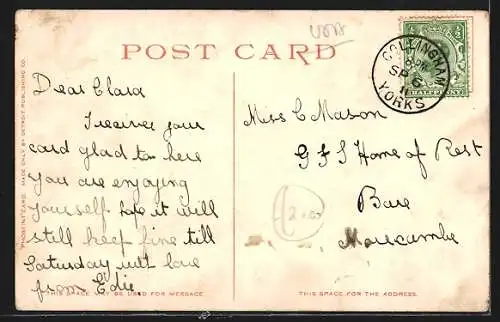 USA
POST CARD
COLLINGHAM
SP 6
11
YORKS
HALFPENNY
Dear Clara
I receive your
card glad to here
you are enjoying
yourself hope it will
still keep fine till
Saturday with love
from Edie
Miss C Mason
G F S Home of Rest
Bare
Morecambe
2.00
PHOSTINT CARD. MADE ONLY BY DETROIT PUBLISHING CO.
THIS SPACE MAY BE USED FOR MESSAGE
THIS SPACE FOR THE ADDRESS.